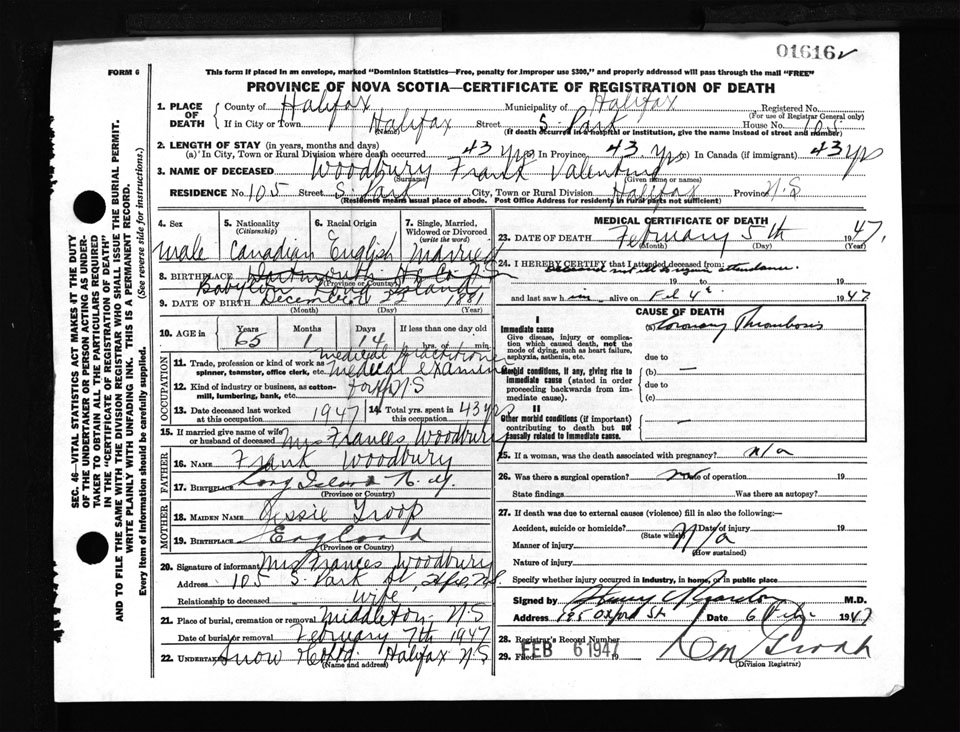 01616
FORM 6
This form if placed in an envelope, marked "Dominion Statistics—Free, penalty for improper use $300," and properly addressed will pass through the mail "FREE"
PROVINCE OF NOVA SCOTIA—CERTIFICATE OF REGISTRATION OF DEATH
1. PLACE OF DEATH County of Halifax Municipality of Halifax Registered No.
(For use of Registrar General only)
If in City or Town Halifax Street S. Park House No. 105
(Name) (If death occurred in a hospital or institution, give the name instead of street and number)
2. LENGTH OF STAY (in years, months and days)
(a) In City, Town or Rural Division where death occurred 43 yrs In Province 43 yrs (c) In Canada (if immigrant) 43 yrs
3. NAME OF DECEASED Woodbury Frank Valentine
(Surname) (Given name or names)
RESIDENCE No. 105 Street S. Park City, Town or Rural Division Halifax Province N.S
(Residence means usual place of abode. Post Office Address for residents in rural parts not sufficient)
4. Sex male
5. Nationality (Citizenship) Canadian
6. Racial Origin English
7. Single, Married, Widowed or Divorced (write the word) Married
8. BIRTHPLACE Dartmouth Hfx Co N.S
(Province or Country)
Babylon Long Island
9. DATE OF BIRTH December 22 1881
(Month) (Day) (Year)
10. AGE in Years 65 Months 1 Days 14 If less than one day old hrs. or min.
OCCUPATION
11. Trade, profession or kind of work as spinner, teamster, office clerk, etc. medical practitioner
medical examiner
12. Kind of industry or business, as cotton-mill, lumbering, bank, etc. for N.S
13. Date deceased last worked at this occupation 1947 14. Total yrs. spent in this occupation 43 yrs
15. If married give name of wife or husband of deceased Mrs Frances Woodbury
FATHER
16. NAME Frank Woodbury
17. BIRTHPLACE Long Island N.Y.
(Province or Country)
MOTHER
18. MAIDEN NAME Jessie Troop
19. BIRTHPLACE England
(Province or Country)
20. Signature of informant Mrs Frances Woodbury
Address 105 S. Park St, Hfx, N.S.
Relationship to deceased wife
21. Place of burial, cremation or removal Middleton, N.S
Date of burial or removal February 7th 1947
22. UNDERTAKER Snow & Co Ltd. Halifax N.S
(Name and address)
MEDICAL CERTIFICATE OF DEATH
23. DATE OF DEATH February 5th 1947
(Month) (Day) (Year)
24. I HEREBY CERTIFY that I attended deceased from:
deceased not ill to require attendance.
19 to 19
and last saw him alive on Feb 4th 1947
CAUSE OF DEATH
I
Immediate cause (a) Coronary Thrombosis
Give disease, injury or complication which caused death, not the mode of dying, such as heart failure, asphyxia, asthenia, etc.
due to
Morbid conditions, if any, giving rise to immediate cause (stated in order proceeding backwards from immediate cause). (b) —
due to
(c)
II
Other morbid conditions (if important) contributing to death but not causally related to immediate cause. —
25. If a woman, was the death associated with pregnancy? N/a
26. Was there a surgical operation? no Date of operation 19
State findings Was there an autopsy?
27. If death was due to external causes (violence) fill in also the following:—
Accident, suicide or homicide? Date of injury 19
(State which) N/a
Manner of injury
(How sustained)
Nature of injury
Specify whether injury occurred in industry, in home, or in public place
Signed by M.D.
Address 195 Oxford St Date 6 Feb. 1947
28. Registrar's Record Number
29. Filed FEB 6 1947 19
(Division Registrar)
SEC. 46—VITAL STATISTICS ACT MAKES IT THE DUTY OF THE UNDERTAKER OR PERSON ACTING AS UNDERTAKER TO OBTAIN ALL THE PARTICULARS REQUIRED IN THE "CERTIFICATE OF REGISTRATION OF DEATH" AND TO FILE THE SAME WITH THE DIVISION REGISTRAR WHO SHALL ISSUE THE BURIAL PERMIT.
WRITE PLAINLY WITH UNFADING INK. THIS IS A PERMANENT RECORD.
Every item of Information should be carefully supplied. (See reverse side for instructions.)